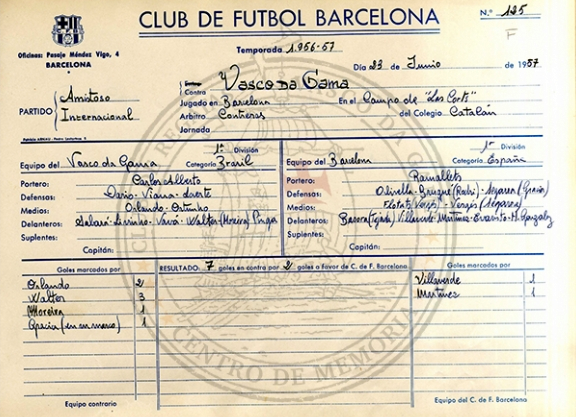 CLUB DE FUTBOL BARCELONA
N.º 125
F
Oficinas: Pasaje Méndez Vigo, 4
BARCELONA
Temporada 1.956-57
Día 23 de Junio de 1957
PARTIDO Amistoso Internacional
Contra Vasco da Gama
Jugado en Barcelona En el Campo de "Las Corts"
Arbitro Contreras del Colegio Catalán
Jornada
1ª División
Equipo del Vasco da Gama Categoría Brasil
Portero: Carlos Alberto
Defensas: Dario - Viana -
Medios: Orlando -
Delanteros: - Livinho - Vavá - Walter (Moreira) Pinga
Suplentes:
Capitán:
1ª División
Equipo del Barcelona Categoría España
Portero: Ramallets
Defensas: Olivella - Brugué (Rodri) - Segarra (Gracia)
Medios: Flotats - Vergés (Segarra)
Delanteros: Basora (Tejada) Villaverde - Martinez - Evaristo - M. Gonzalez
Suplentes:
Capitán:
Goles marcados por
RESULTADO: 7 goles en contra por 2 goles a Favor de C. de F. Barcelona
Goles marcados por
Orlando 2
Walter 3
Moreira 1
Gracia (en su marco) 1
Villaverde 1
Martinez 1
Equipo contrario
Equipo del C. de F. Barcelona
CENTRO DE MEMÓRIA